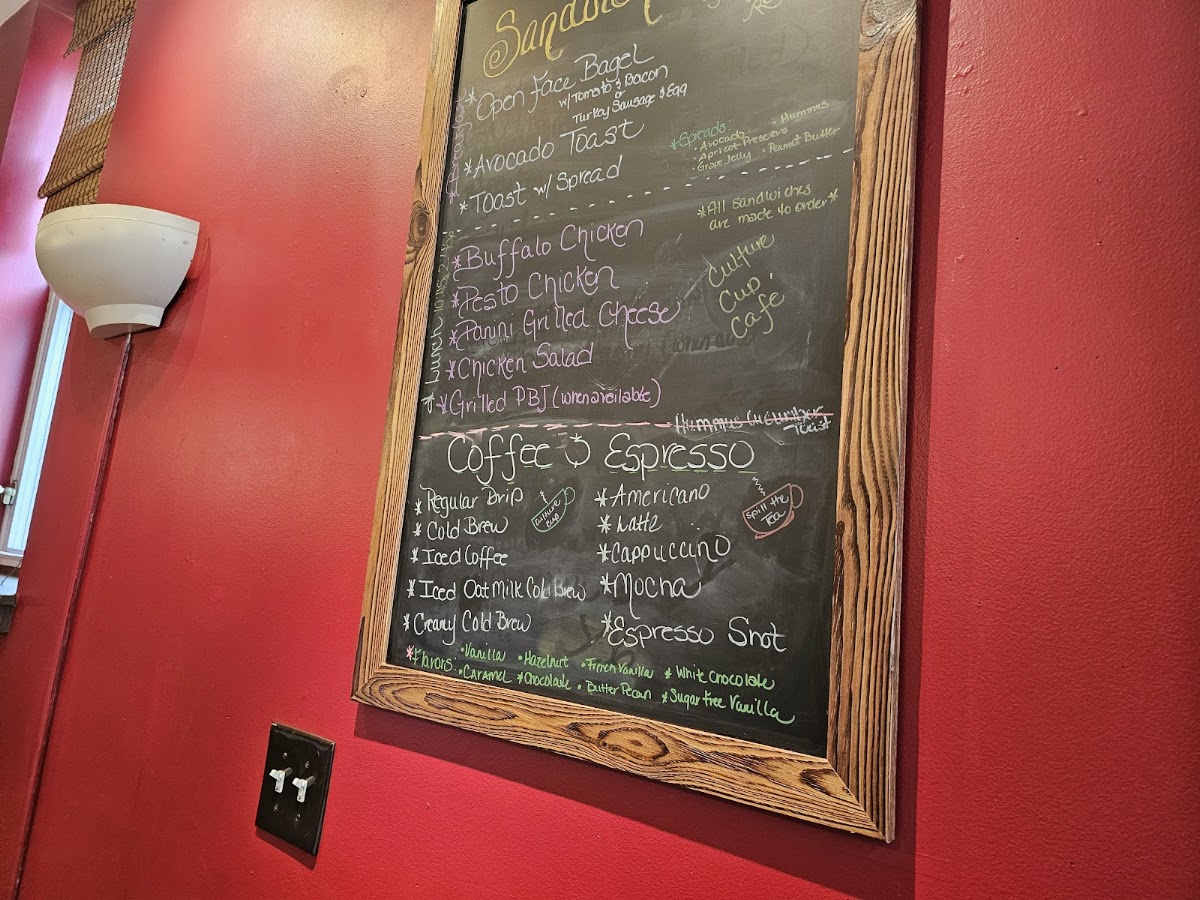 Sandwich
*Open Face Bagel
w/ Tomato & Bacon
or
Turkey Sausage & Egg
*Avocado Toast
*Toast w/ Spread
*Spreads:
• Avocado • Hummus
• Apricot Preserves
• Grape Jelly • Peanut Butter
*All Sandwiches
are made to order*
* Lunch
*Buffalo Chicken
*Pesto Chicken
*Panini Grilled Cheese
*Chicken Salad
*Grilled PBJ (when available)
Culture
Cup
Café
Hummus Cucumber
Twist
Coffee & Espresso
*Regular Drip
*Cold Brew
*Iced Coffee
*Iced Oat Milk Cold Brew
*Creamy Cold Brew
Culture
Cup
*Americano
*Latte
*Cappuccino
*Mocha
*Espresso Shot
Spill the
Tea
*Flavors: •Vanilla •Hazelnut •French Vanilla *White Chocolate
•Caramel *Chocolate •Butter Pecan *Sugar Free Vanilla